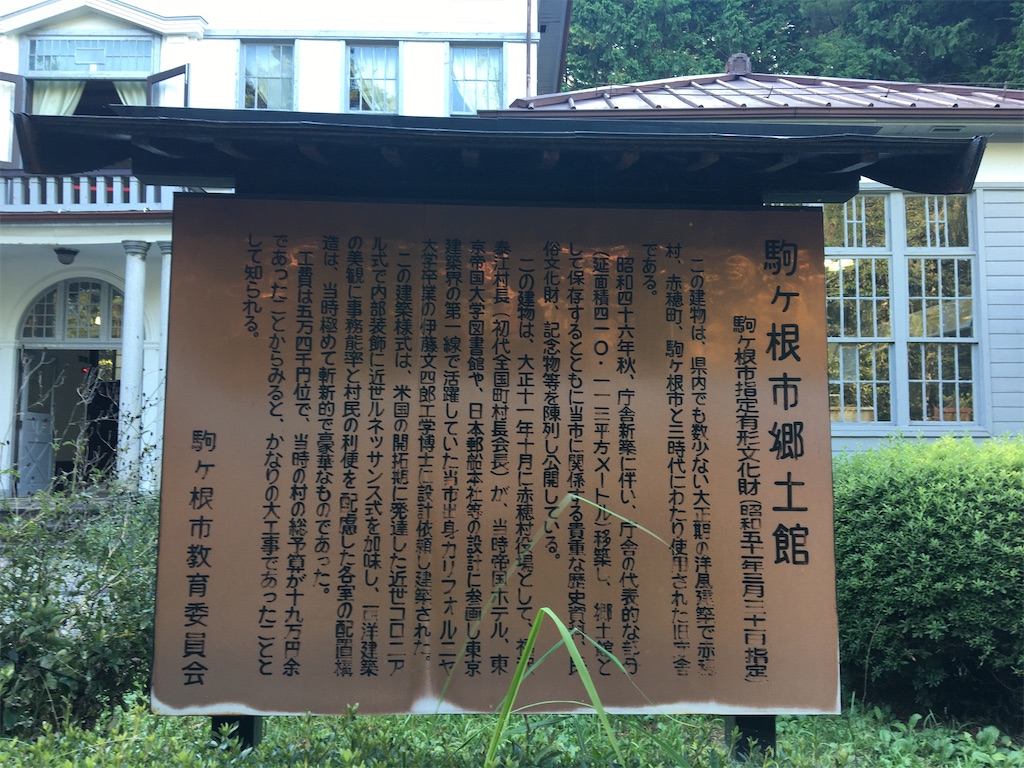 駒ヶ根市郷土館
駒ケ根市指定有形文化財(昭和五十年三月二十日指定)
この建物は、県内でも数少ない大正期の洋風建築で赤穂
村、赤穂町、駒ヶ根市と三時代にわたり使用された旧庁舎
である。
昭和四十六年秋、庁舎新築に伴い、庁舎の代表的な部分
(延面積四一〇・一一三平方メートル)移築し、郷土館と
して保存するとともに当市に関係する貴重な歴史資料、民
俗文化財、記念物等を陳列し公開している。
この建物は、大正十一年十月に赤穂村役場として、福沢
泰江村長(初代全国町村長会長)が、当時帝国ホテル、東
京帝国大学図書館や、日本郵船本社等の設計に参画し東京
建築界の第一線で活躍していた当市出身カリフォルニヤ
大学卒業の伊藤文四郎工学博士に設計依頼し建築された。
この建築様式は、米国の開拓期に発達した近世コロニア
ル式で内部装飾に近世ルネッサンス式を加味し、西洋建築
の美観に事務能率と村民の利便を配慮した各室の配置構
造は、当時極めて斬新的で豪華なものであった。
工費は五万四千円位で、当時の村の総予算が十九万円余
であったことからみると、かなりの大工事であったことと
して知られる。
駒ヶ根市教育委員会